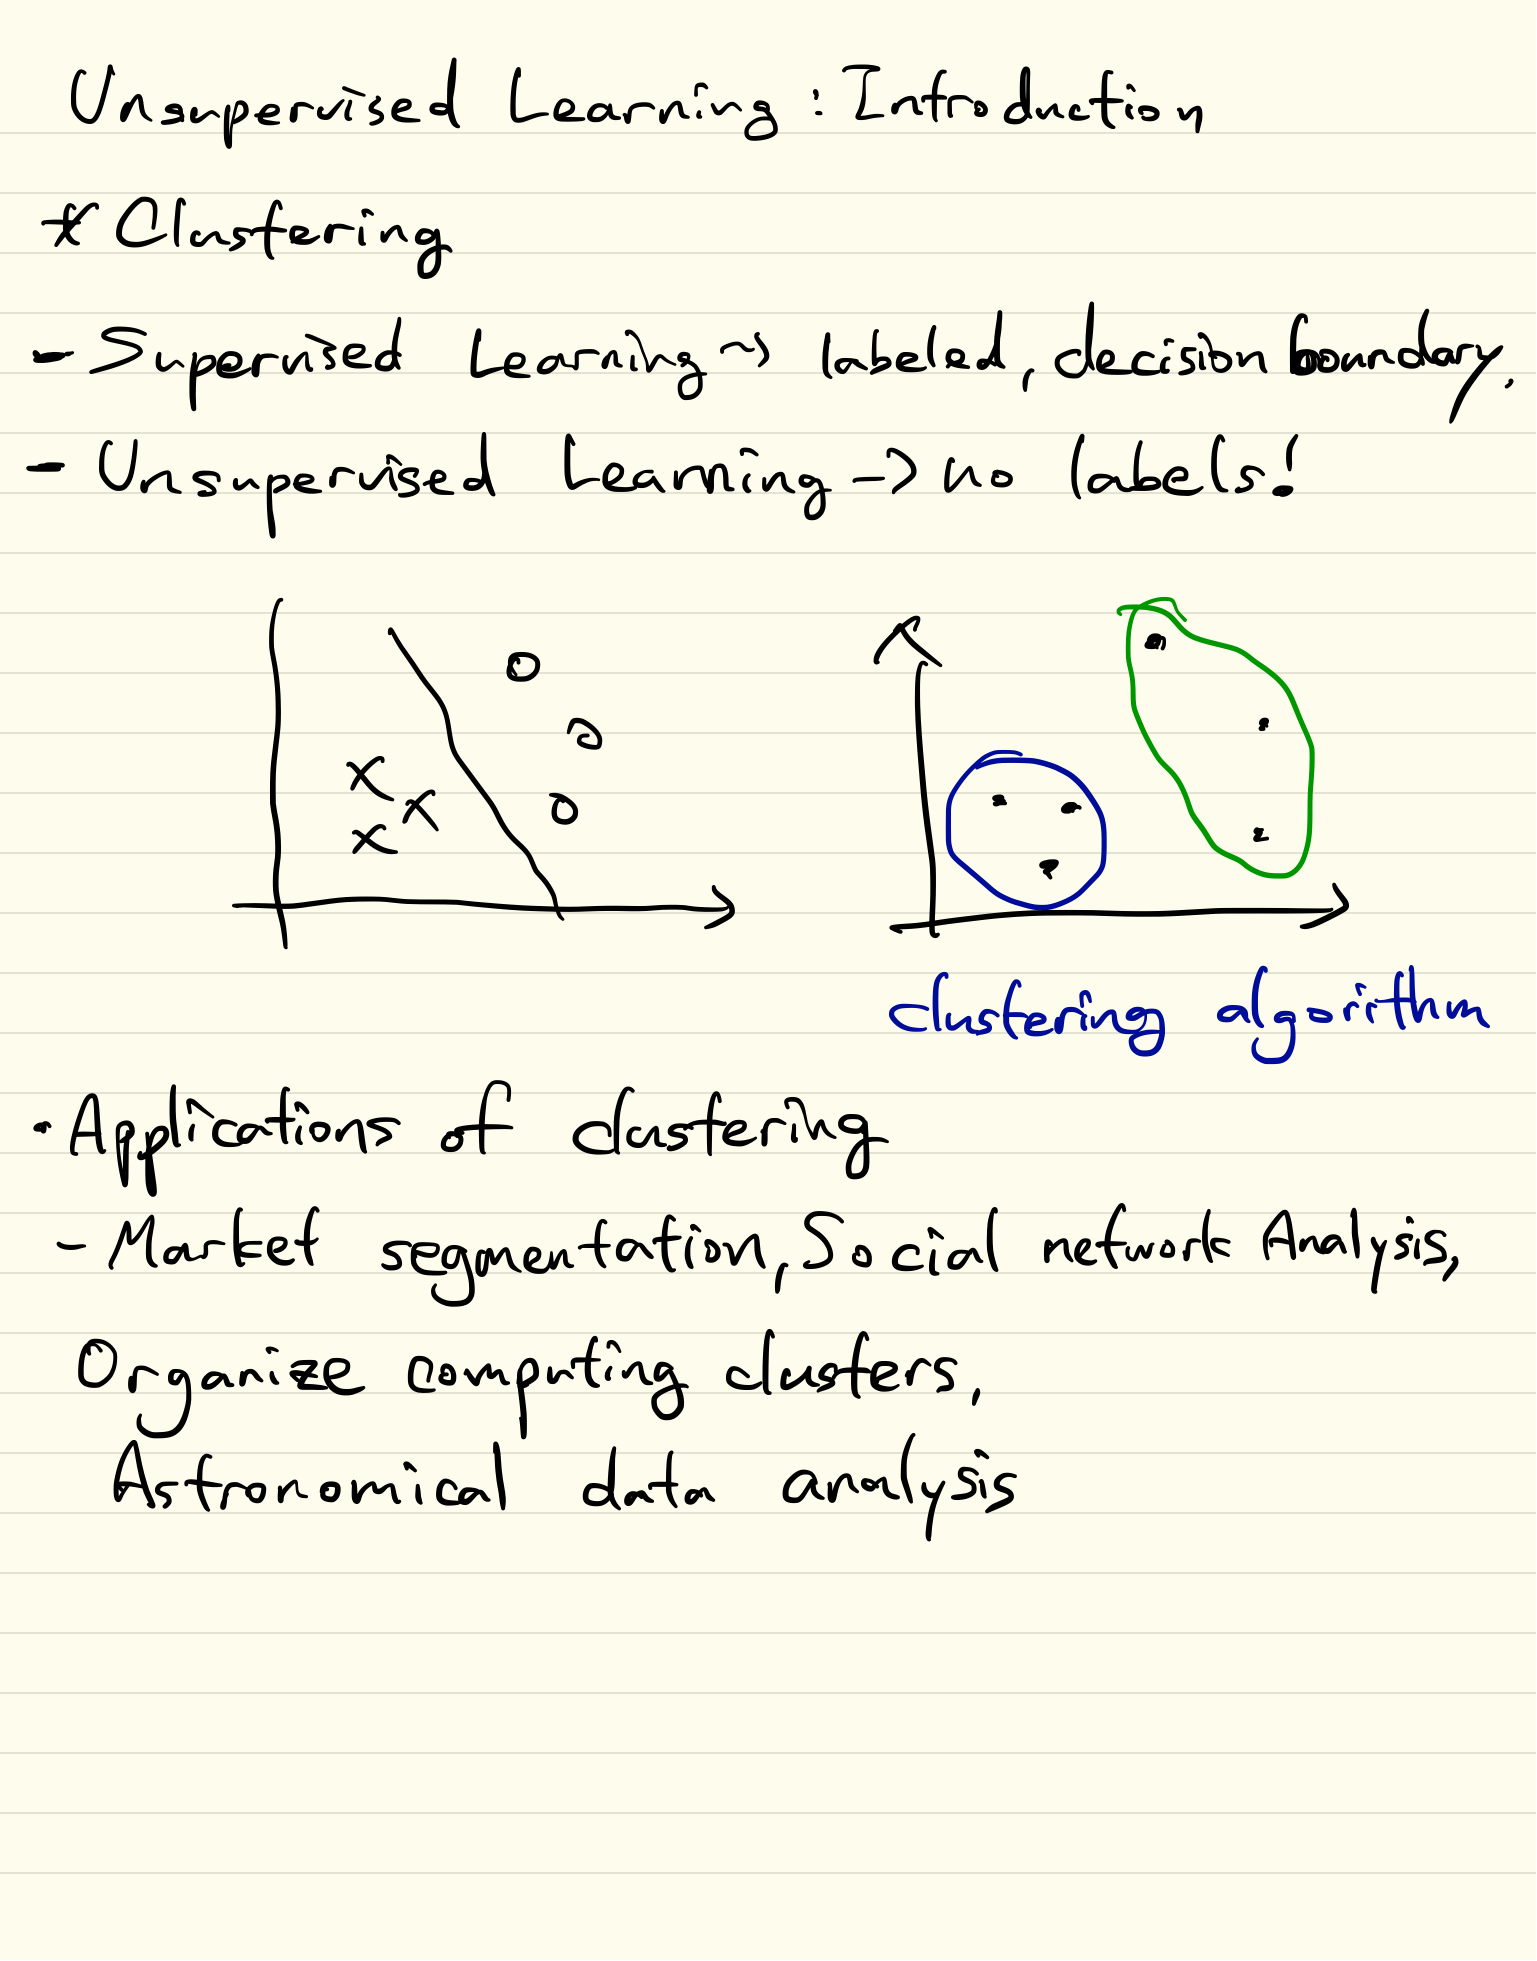 Unsupervised Learning : Introduction
* Clustering
- Supervised Learning → labeled, decision boundary.
- Unsupervised Learning → no labels!
clustering algorithm
• Applications of clustering
- Market segmentation, Social network Analysis,
Organize computing clusters,
Astronomical data analysis